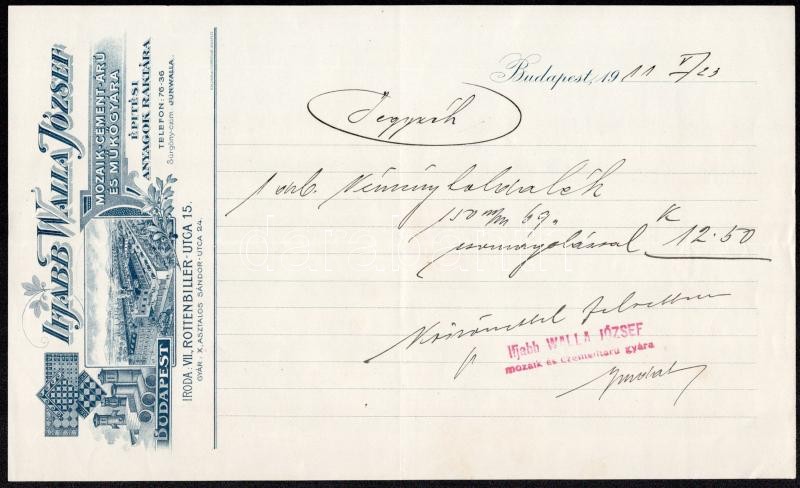 IFJABB WALLA JÓZSEF
MOZAIK-CEMENT-ÁRU
ÉS MŰKŐGYÁRA
ÉPITÉSI
ANYAGOK RAKTÁRA
TELEFON: 76-36
Sürgöny-czim: JUNWALLA.
BUDAPEST
IRODA: VII, ROTTENBILLER-UTCA 15.
GYÁR: X, ASZTALOS SÁNDOR-UTCA 24.
Budapest, 1911 V/23
Jegyzék
1 drb.
150 m/m K
csomagolással 12·50
Köszönettel felvettem
Ifjabb WALLA JÓZSEF
mozaik és czementárú gyára